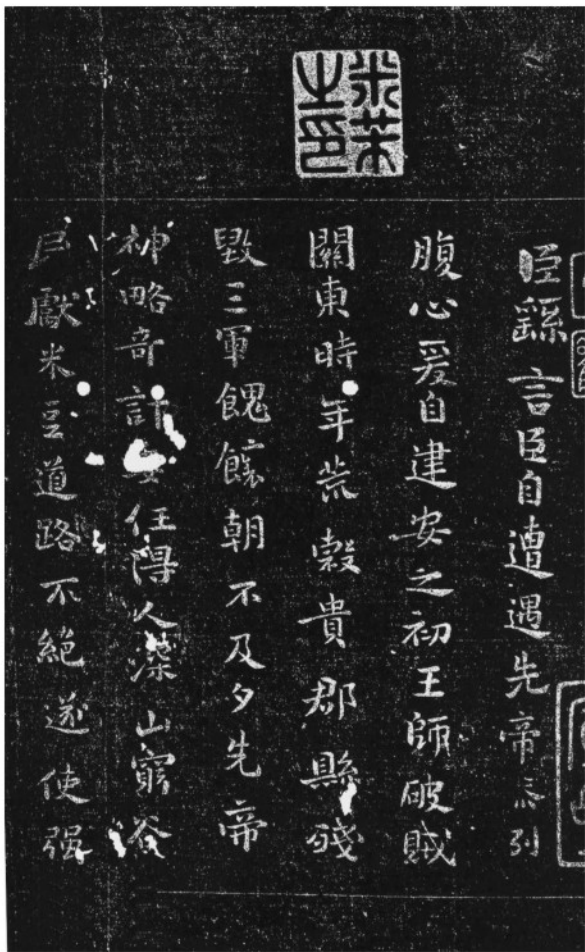 米芾
之印
臣繇言臣自遭遇先帝忝列
腹心爰自建安之初王師破賊
關東時年荒穀貴郡縣殘
毀三軍餽饟朝不及夕先帝
神略奇計委任得人深山窮谷
民獻米豆道路不絕遂使强